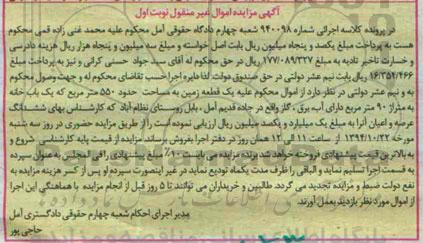 آگهی مزایده اموال غیر منقول نوبت اول
در پرونده کلاسه اجرائی شماره ۹۴۰۰۹۸ شعبه چهارم دادگاه حقوقی آمل محکوم علیه محمد غنی زاده قمی محکوم
هست به پرداخت مبلغ یکصد و پنجاه میلیون ریال بابت اصل خواسته و مبلغ سه میلیون و پنجاه هزار ریال هزینه دادرسی
و خسارت تاخیر تادیه به مبلغ ۱۷۷/۰۸۹/۳۲۷ ریال در حق محکوم له آقای سید جواد حسنی کرانی و نیز به پرداخت مبلغ
۱۶/۳۵۴/۴۶۶ ریال بابت نیم عشر دولتی در حق صندوق دولت، لذا دایره اجرا حسب تقاضای محکوم له و جهت وصول محکوم
به و نیم عشر دولتی در نظر دارد از اموال محکوم علیه یک قطعه زمین به مساحت حدود ۵۵۰ متر مربع که یک باب خانه
به متراژ ۹۰ متر مربع دارای آب، برق، گاز واقع در جاده قدیم آمل - بابل روستای نظام آباد که کارشناس بهای ششدانگ
عرصه و اعیان آنرا به مبلغ یک میلیارد و یکصد میلیون ریال ارزیابی نموده است را از طریق مزایده حضوری در روز سه شنبه
مورخه ۱۳۹۴/۱۰/۲۲ از ساعت ۱۱ الی ۱۲ همان روز در دفتر اجرا بفروش برساند مزایده از قیمت پایه کارشناسی شروع و
به بالاترین قیمت پیشنهادی فروخته خواهد شد برنده مزایده می بایست ۱۰٪ مبلغ پیشنهادی را فی المجلس به عنوان سپرده
به قسمت اجرا تسلیم نماید و الباقی را ظرف مدت یکماه تودیع نماید در غیر اینصورت سپرده او پس از کسر هزینه مزایده به
نفع دولت ضبط و مزایده تجدید می گردد. طالبین و خریداران می توانند تا ۵ روز قبل از انجام مزایده با هماهنگی این اجرا
از اموال مورد نظر بازدید بعمل آورند.
مدیر اجرای احکام شعبه چهارم حقوقی دادگستری آمل
حاجی پور